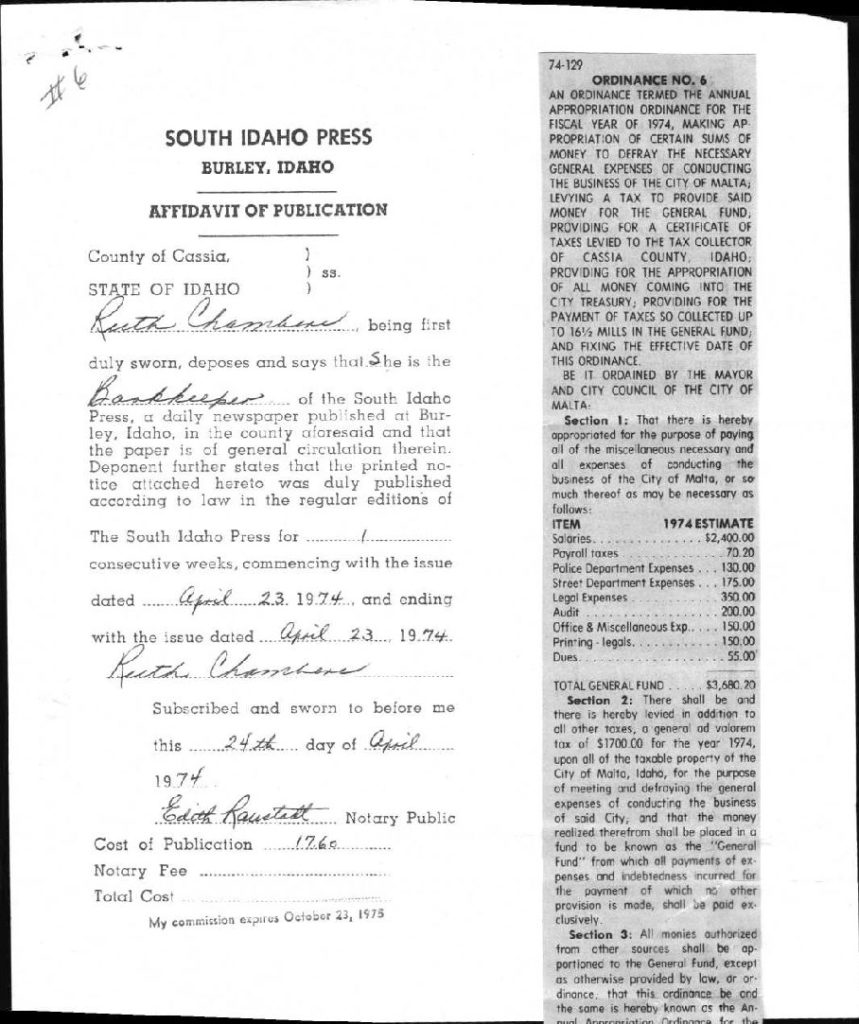 #6
SOUTH IDAHO PRESS
BURLEY, IDAHO
AFFIDAVIT OF PUBLICATION
County of Cassia, )
) ss.
STATE OF IDAHO )
Ruth Chambers, being first
duly sworn, deposes and says that She is the
Bookkeeper of the South Idaho
Press, a daily newspaper published at Bur-
ley, Idaho, in the county aforesaid and that
the paper is of general circulation therein.
Deponent further states that the printed no-
tice attached hereto was duly published
according to law in the regular editions of
The South Idaho Press for 1
consecutive weeks, commencing with the issue
dated April 23 1974, and ending
with the issue dated April 23, 1974.
Ruth Chambers
Subscribed and sworn to before me
this 24th day of April
1974
Edith Notary Public
Cost of Publication 17.60
Notary Fee
Total Cost
My commission expires October 23, 1975
74-129
ORDINANCE NO. 6
AN ORDINANCE TERMED THE ANNUAL
APPROPRIATION ORDINANCE FOR THE
FISCAL YEAR OF 1974, MAKING AP-
PROPRIATION OF CERTAIN SUMS OF
MONEY TO DEFRAY THE NECESSARY
GENERAL EXPENSES OF CONDUCTING
THE BUSINESS OF THE CITY OF MALTA;
LEVYING A TAX TO PROVIDE SAID
MONEY FOR THE GENERAL FUND,
PROVIDING FOR A CERTIFICATE OF
TAXES LEVIED TO THE TAX COLLECTOR
OF CASSIA COUNTY, IDAHO;
PROVIDING FOR THE APPROPRIATION
OF ALL MONEY COMING INTO THE
CITY TREASURY; PROVIDING FOR THE
PAYMENT OF TAXES SO COLLECTED UP
TO 16½ MILLS IN THE GENERAL FUND;
AND FIXING THE EFFECTIVE DATE OF
THIS ORDINANCE.
BE IT ORDAINED BY THE MAYOR
AND CITY COUNCIL OF THE CITY OF
MALTA:
Section 1: That there is hereby
appropriated for the purpose of paying
all of the miscellaneous necessary and
all expenses of conducting the
business of the City of Malta, or so
much thereof as may be necessary as
follows:
ITEM 1974 ESTIMATE
Salaries. . . . . . . . . . . . . . . $2,400.00
Payroll taxes . . . . . . . . . . . . . 70.20
Police Department Expenses . . . 130.00
Street Department Expenses . . . 175.00
Legal Expenses . . . . . . . . . . . . 350.00
Audit . . . . . . . . . . . . . . . . . . 200.00
Office & Miscellaneous Exp. . . . . 150.00
Printing - legals. . . . . . . . . . . . 150.00
Dues. . . . . . . . . . . . . . . . . . . . 55.00
TOTAL GENERAL FUND . . . . . $3,680.20
Section 2: There shall be and
there is hereby levied in addition to
all other taxes, a general ad valorem
tax of $1700.00 for the year 1974,
upon all of the taxable property of the
City of Malta, Idaho, for the purpose
of meeting and defraying the general
expenses of conducting the business
of said City; and that the money
realized therefrom shall be placed in a
fund to be known as the "General
Fund" from which all payments of ex-
penses and indebtedness incurred for
the payment of which no other
provision is made, shall be paid ex-
clusively.
Section 3: All monies authorized
from other sources shall be ap-
portioned to the General Fund, except
as otherwise provided by law, or or-
dinance, that this ordinance be and
the same is hereby known as the An-
nual Appropriation Ordinance for the